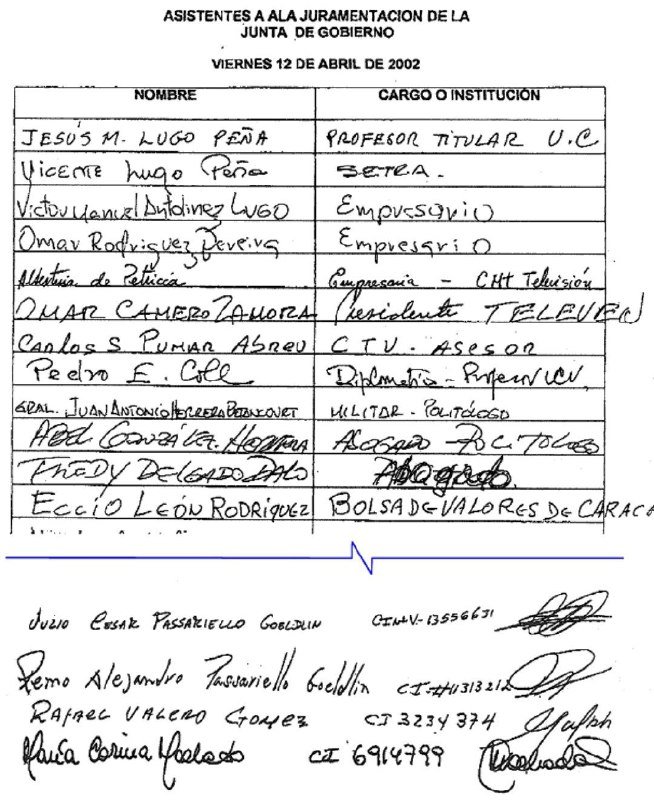 ASISTENTES A ALA JURAMENTACION DE LA
JUNTA DE GOBIERNO
VIERNES 12 DE ABRIL DE 2002
NOMBRE CARGO O INSTITUCIÓN
JESÚS M. LUGO PEÑA PROFESOR TITULAR U.C
Vicente Lugo Peña SETRA.
Victor Manuel Antolinez LUGO Empresario
Omar Rodriguez Pereira Empresario
de Petricca Empresaria - CMT Televisión
OMAR CAMERO ZAMORA Presidente TELEVEN
Carlos S PUMAR ABREU CTV - ASESOR
Pedro E. Coll Diplomático - Profesor UCV,
GRAL. JUAN ANTONIO HERRERA BETANCOURT MILITAR - POLITÓLOGO
ABEL GONZÁLEZ HERRERA ABOGADO POLITOLOGO
FREDY DELGADO Abogado
ECCIO LEÓN RODRIGUEZ BOLSA DE VALORES DE CARACA
JULIO CESAR PASSARIELLO GOELDLIN V-13556631
Remo Alejandro Passariello Goeldlin
RAFAEL VALERO GOMEZ CI 3234374
María Corina Machado CI 6914799